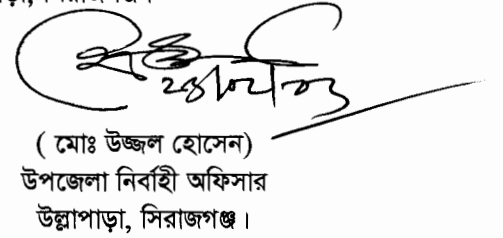 ( মোঃ উজ্জল হোসেন)
উপজেলা নির্বাহী অফিসার
উল্লাপাড়া, সিরাজগঞ্জ।